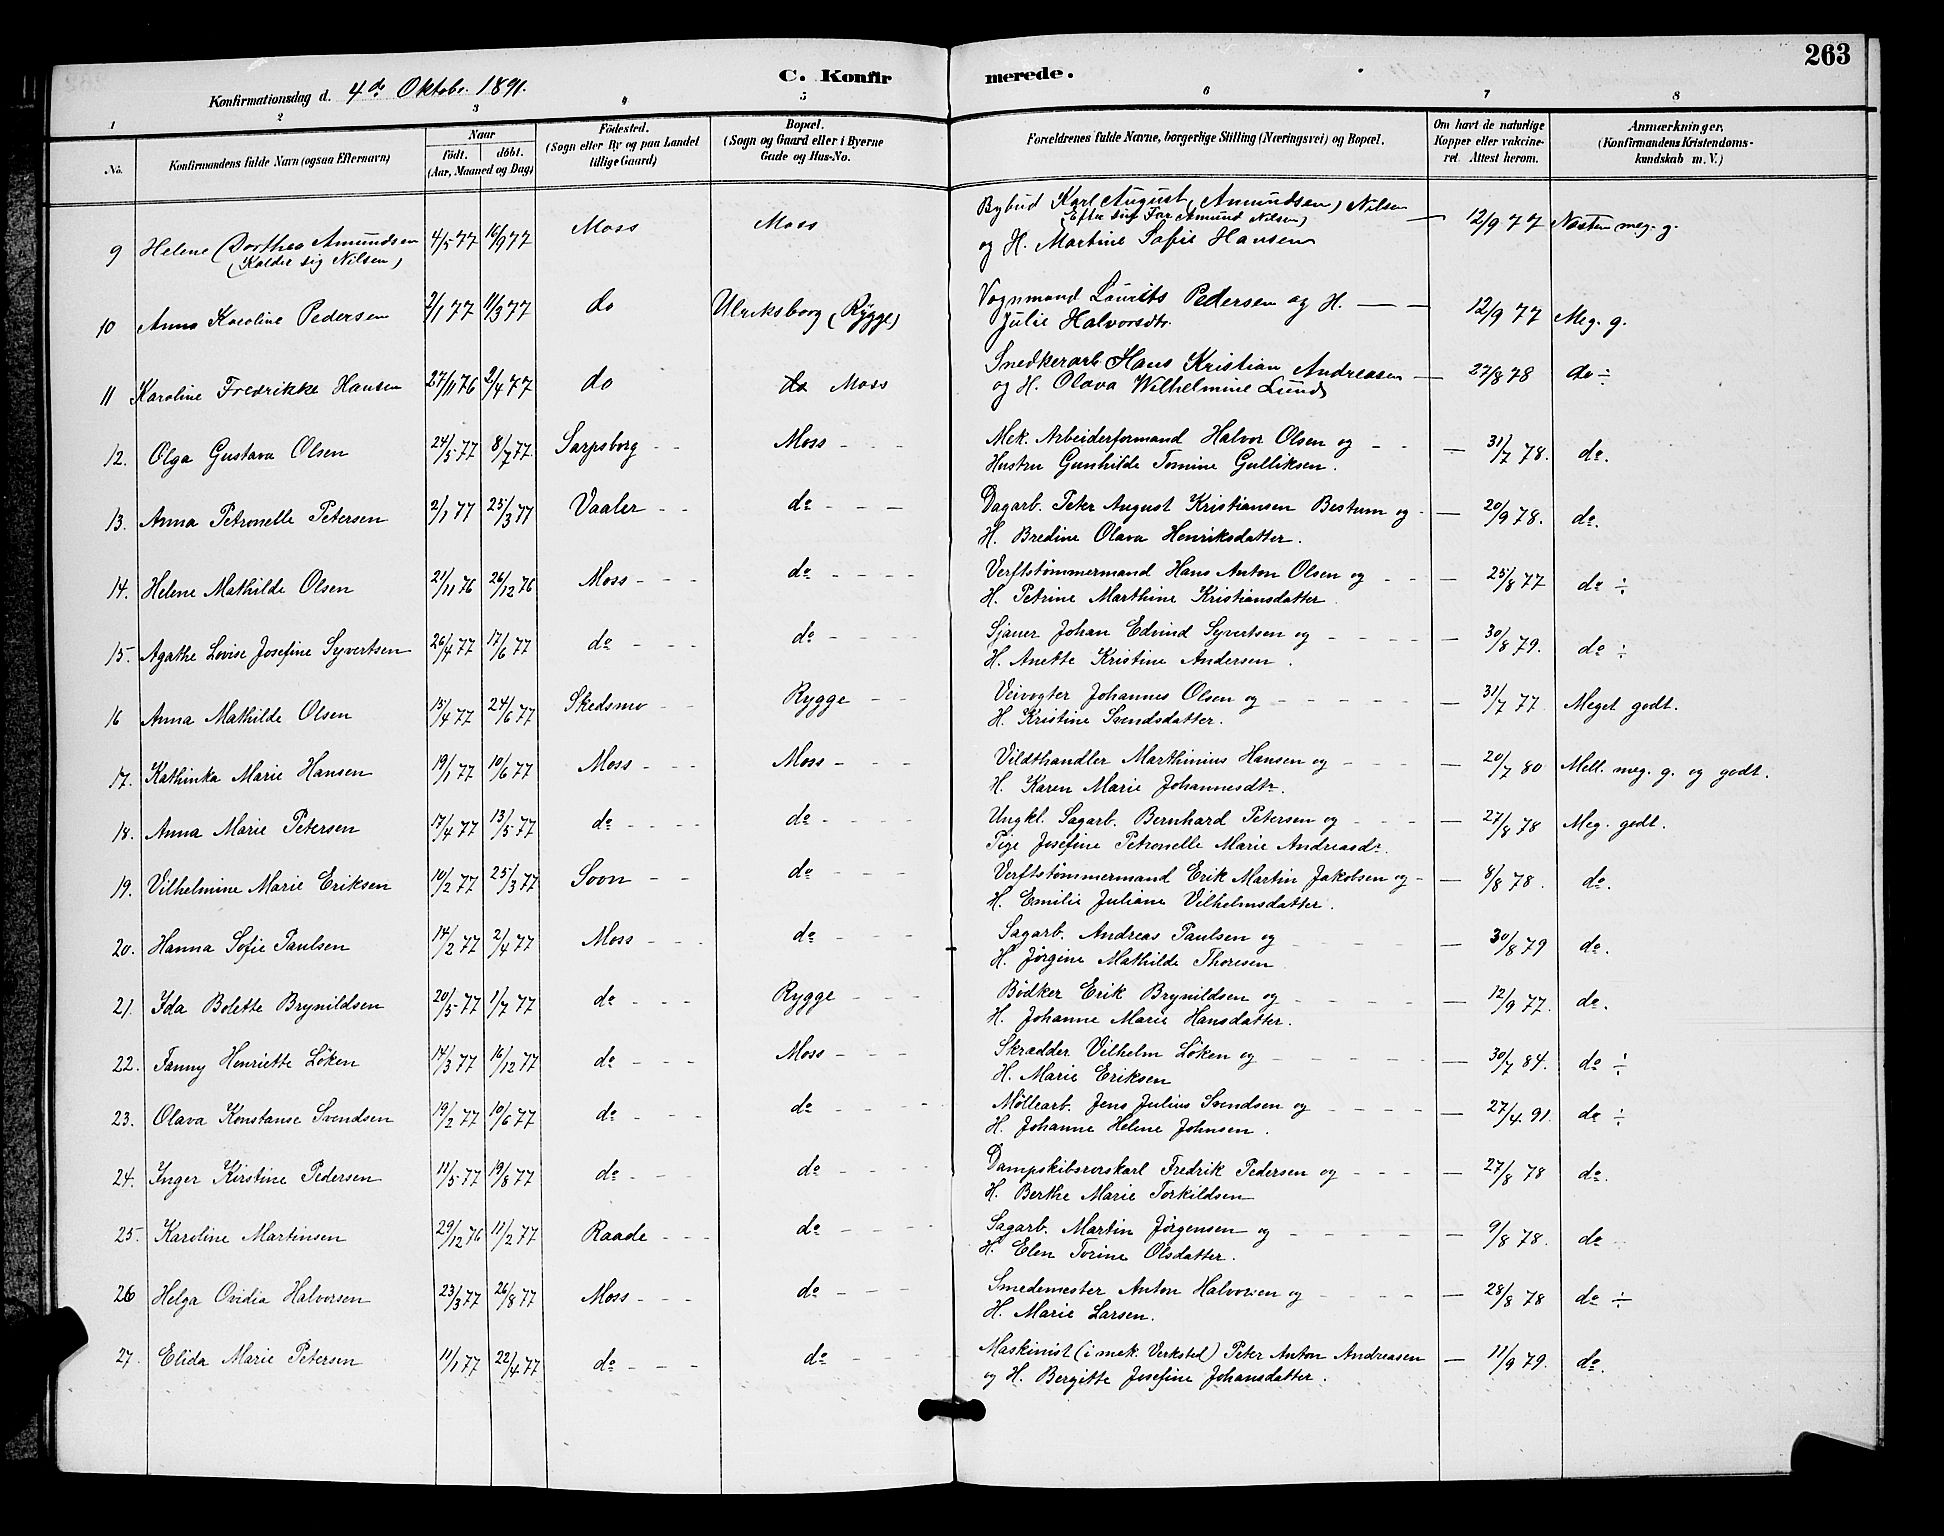 263
Konfirmationsdag d. 4de Oktobr. 1891. C. Konfir merede.
1 2 3 4 5 6 7 8
No. Konfirmandens fulde Navn (ogsaa Efternavn) Naar født. døbt. (Aar, Maaned og Dag) Födested. (Sogn eller By og paa Landet tillige Gaard) Bopæl. (Sogn og Gaard eller i Byerne Gade og Hus-No. Forældrenes fulde Navne, borgerlige Stilling (Næringsvei) og Bopæl. Om havt de naturlige Kopper eller vakcineret. Attest herom. Anmærkninger. (Konfirmandens Kristendomskundskab m. V.)
9 Helene Dorthea Amundsen 4/5 77 16/9 77 Moss Moss Bybud Karl August (Amundsen) Nilsen — 12/9 77 Næsten meg. g.
(Kalder sig Nilsen) (Efter sig Far Amund Nilsen)
og H. Martine Sofie Hansen
10 Anna Karoline Pedersen 2/1 77 11/3 77 do Ulriksborg (Rygge) Vognmand Laurits Pedersen og H. — — 12/9 77 Meg. g.
Julie Halvorsdtr.
11 Karoline Fredrikke Hansen 27/11 76 2/4 77 do do Moss Snedkerarb. Hans Kristian Andreasen — 27/8 78 do ÷
og H. Olava Wilhelmine Lund
12. Olga Gustava Olsen 24/5 77 8/7 77. Sarpsborg - - Moss - - - Mek. Arbeiderformand Halvor Olsen og - - — 31/7 78. do.
Hustru Gunhilde Tomine Gulliksen.
13. Anna Petronelle Petersen 2/1 77 25/3 77 Vaaler - - do - - - Dagarb. Peter August Kristiansen Bestum og - — 20/9 78. do.
H. Bredine Olava Henriksdatter.
14. Helene Mathilde Olsen 21/11 76 26/12 76 Moss - - - do - - - - Verftstømmermand Hans Anton Olsen og - - — 25/8 77 do ÷
H. Petrine Marthine Kristiansdatter
15. Agathe Lovise Josefine Syvertsen 26/4 77 17/6 77 do - - - do - - - - Sjauer Johan Edvind Syvertsen og - - - - — 30/8 79. do ÷
H. Anette Kristine Andersen.
16 Anna Mathilde Olsen 15/4 77 24/6 77 Skedsmo - - Rygge - - Veivogter Johannes Olsen og - - - - - — 31/7 77. Meget godt.
H. Kristine Svendsdatter.
17. Kathinka Marie Hansen 19/1 77 10/6 77 Moss - - - Moss - - - Vildthandler Marthinius Hansen og - - - — 20/7 80 Mell. meg. g. og godt.
H. Karen Marie Johannesdtr.
18. Anna Marie Petersen 17/4 77 13/5 77 do - - - do - - - - Ungkl. Sagarb. Bernhard Petersen og - - - — 27/8 78 Meg. godt.
Pige Josefine Petronelle Marie Andreasdr.
19. Vilhelmine Marie Eriksen 10/2 77 25/3 77 Soon - - do - - - Verftstømmermand Erik Martin Jakobsen og - — 8/8 78. do.
H. Emilie Juliane Vilhelmsdatter.
20. Hanna Sofie Paulsen 14/2 77 2/4 77 Moss - - - do - - - Sagarb. Andreas Paulsen og - - - - — 30/8 79 do.
H. Jørgine Mathilde Thoresen
21. Ida Bolette Brynildsen 20/5 77 1/7 77 do - - - Rygge - - - Bødker Erik Brynildsen og - - - - — 12/9 77. do.
H. Johanne Marie Hansdatter.
22. Fanny Henriette Løken 14/3 77 16/12 77 do - - - Moss - - - Skrædder Vilhelm Løken og - - - - — 30/7 84. do ÷
H. Marie Eriksen
23. Olava Konstanse Svendsen 19/2 77 10/6 77 do - - - do - - - Møllearb. Jens Julius Svendsen og - - - - — 27/4 91. do ÷
H. Johanne Helene Johnsen.
24. Inger Kirstine Pedersen 11/5 77 19/8 77 do - - - do - - - Dampskibsrorskarl Fredrik Pedersen og - - - — 27/8 78 do.
H. Berthe Marie Torkildsen
25. Karoline Martinsen 29/12 76 11/2 77 Raade - - - do - - - Sagarb. Martin Jørgensen og - - - - - — 9/8 78. do
H. Elen Torine Olsdatter.
26 Helga Ovidia Halvorsen 23/3 77 26/8 77 Moss - - - do - - - Smedemester Anton Halvorsen og - - - - — 28/8 78 do ÷
H. Marie Larsen.
27. Elida Marie Petersen 11/1 77 22/4 77 do - - - do - - - Maskinist (i mek. Verksted) Peter Anton Andreasen — 11/9 79. do.
og H. Bergitte Josefine Johansdatter.